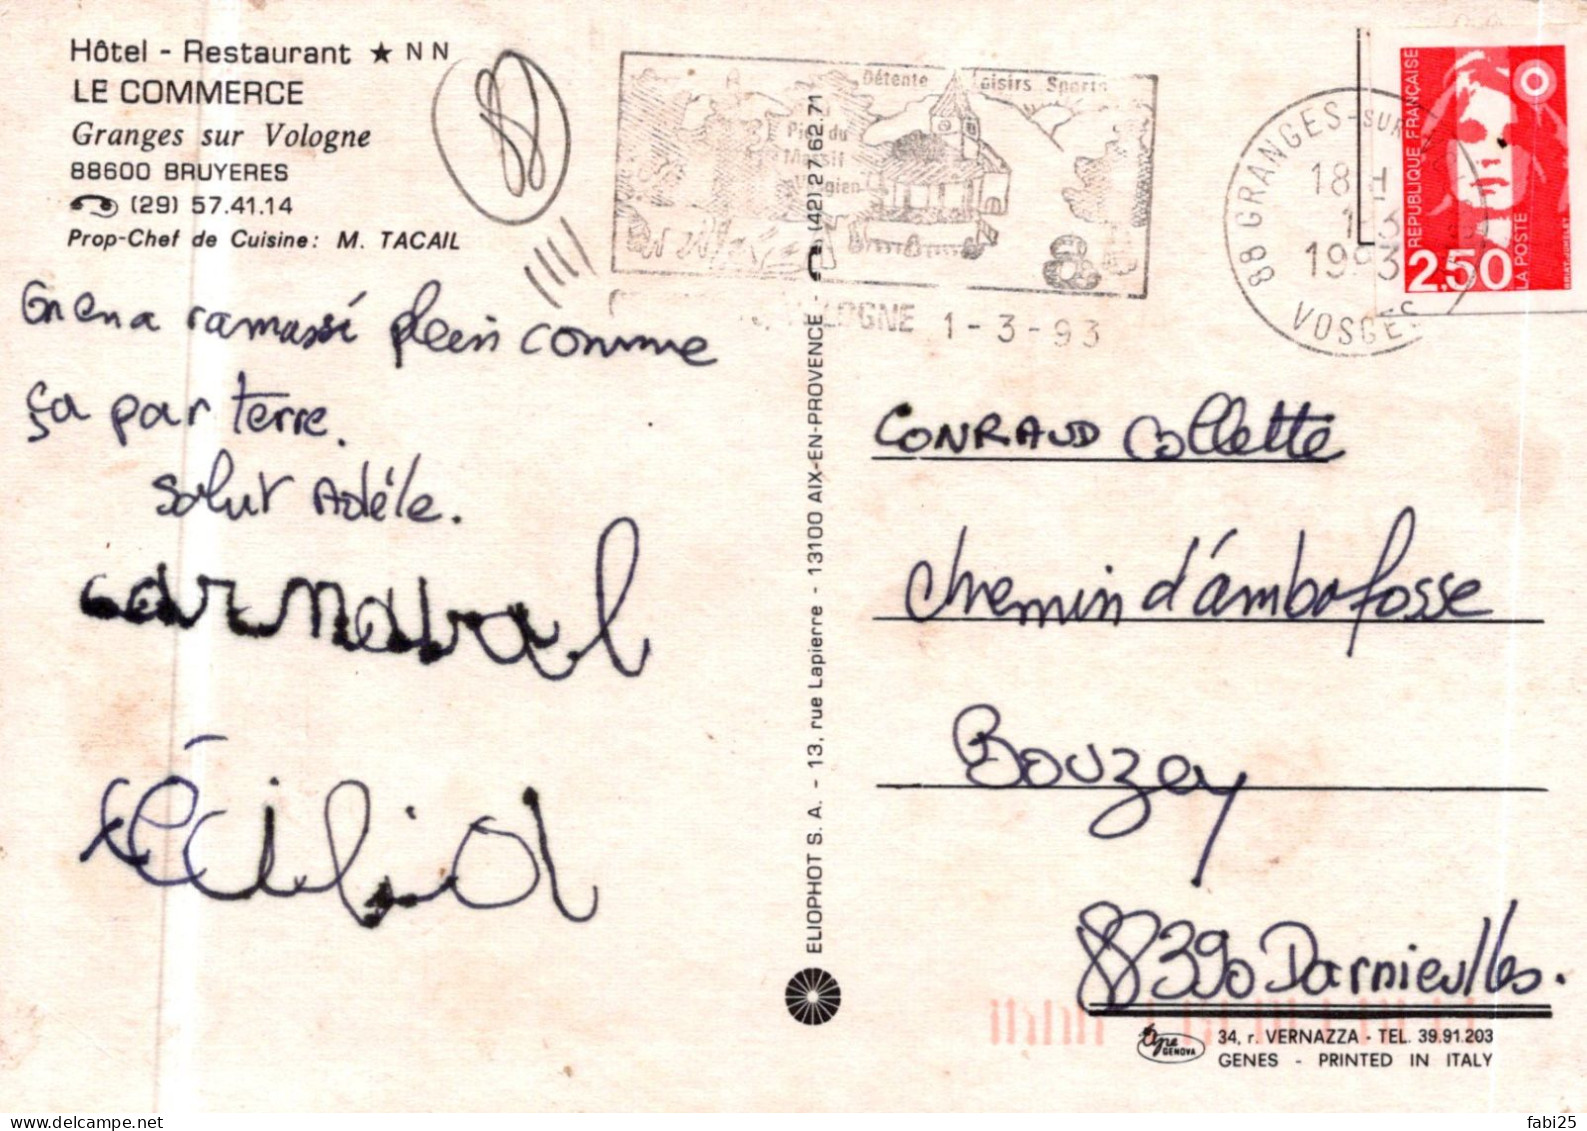 Hôtel - Restaurant ★ N N
LE COMMERCE
Granges sur Vologne
88600 BRUYERES
(29) 57.41.14
Prop-Chef de Cuisine: M. TACAIL
88
On en a ramassé plein comme
ça par terre.
Salut Adéle.
carnaval
Détente Loisirs Sports
Pied du
Massif
1-3-93
88 GRANGES-SUR
18 H
1-3
1993
VOSGES
REPUBLIQUE FRANÇAISE
LA POSTE
2,50
ELIOPHOT S. A. - 13, rue Lapierre - 13100 AIX-EN-PROVENCE - (42) 27.62.71
CONRAUD Collette
chemin d'ambofosse
Bouzey
88390 Darnieulles.
GENOVA
34, r. VERNAZZA - TEL. 39.91.203
GENES - PRINTED IN ITALY
delcampe.net
fabi25